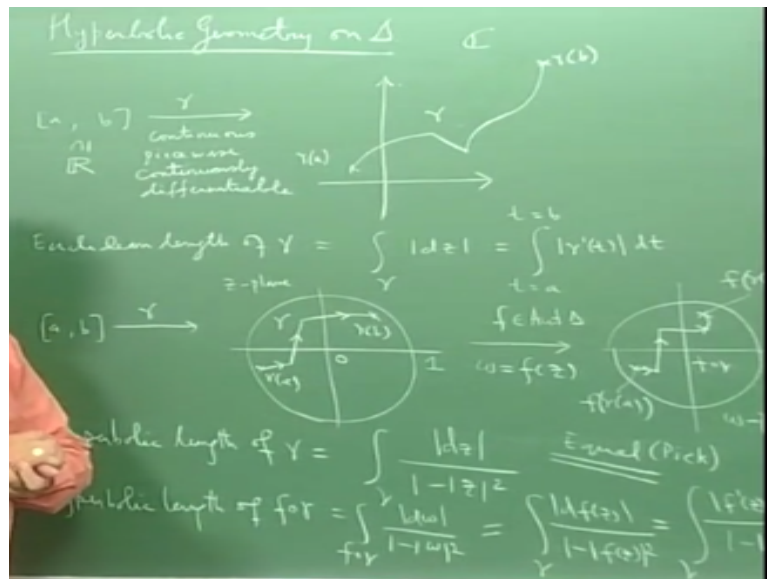 Hyperbolic Geometry on Δ
ℂ
γ(b)
[a, b] γ→
γ
∩|
ℝ
continuous
piecewise
continuously
differentiable
γ(a)
Euclidean length of γ = ∫_γ |dz| = ∫_{t=a}^{t=b} |γ'(t)| dt
z-plane
[a, b] γ→
γ
γ(b)
γ(a)
0
1
f ∈ Aut Δ
ω = f(z)
f(γ(a))
f∘γ
bolic length of γ = ∫_γ |dz| / 1-|z|²
Equal (Pick)
perbolic length of f∘γ = ∫_{f∘γ} |dω| / 1-|ω|² = ∫_γ |df(z)| / 1-|f(z)|² = ∫_γ